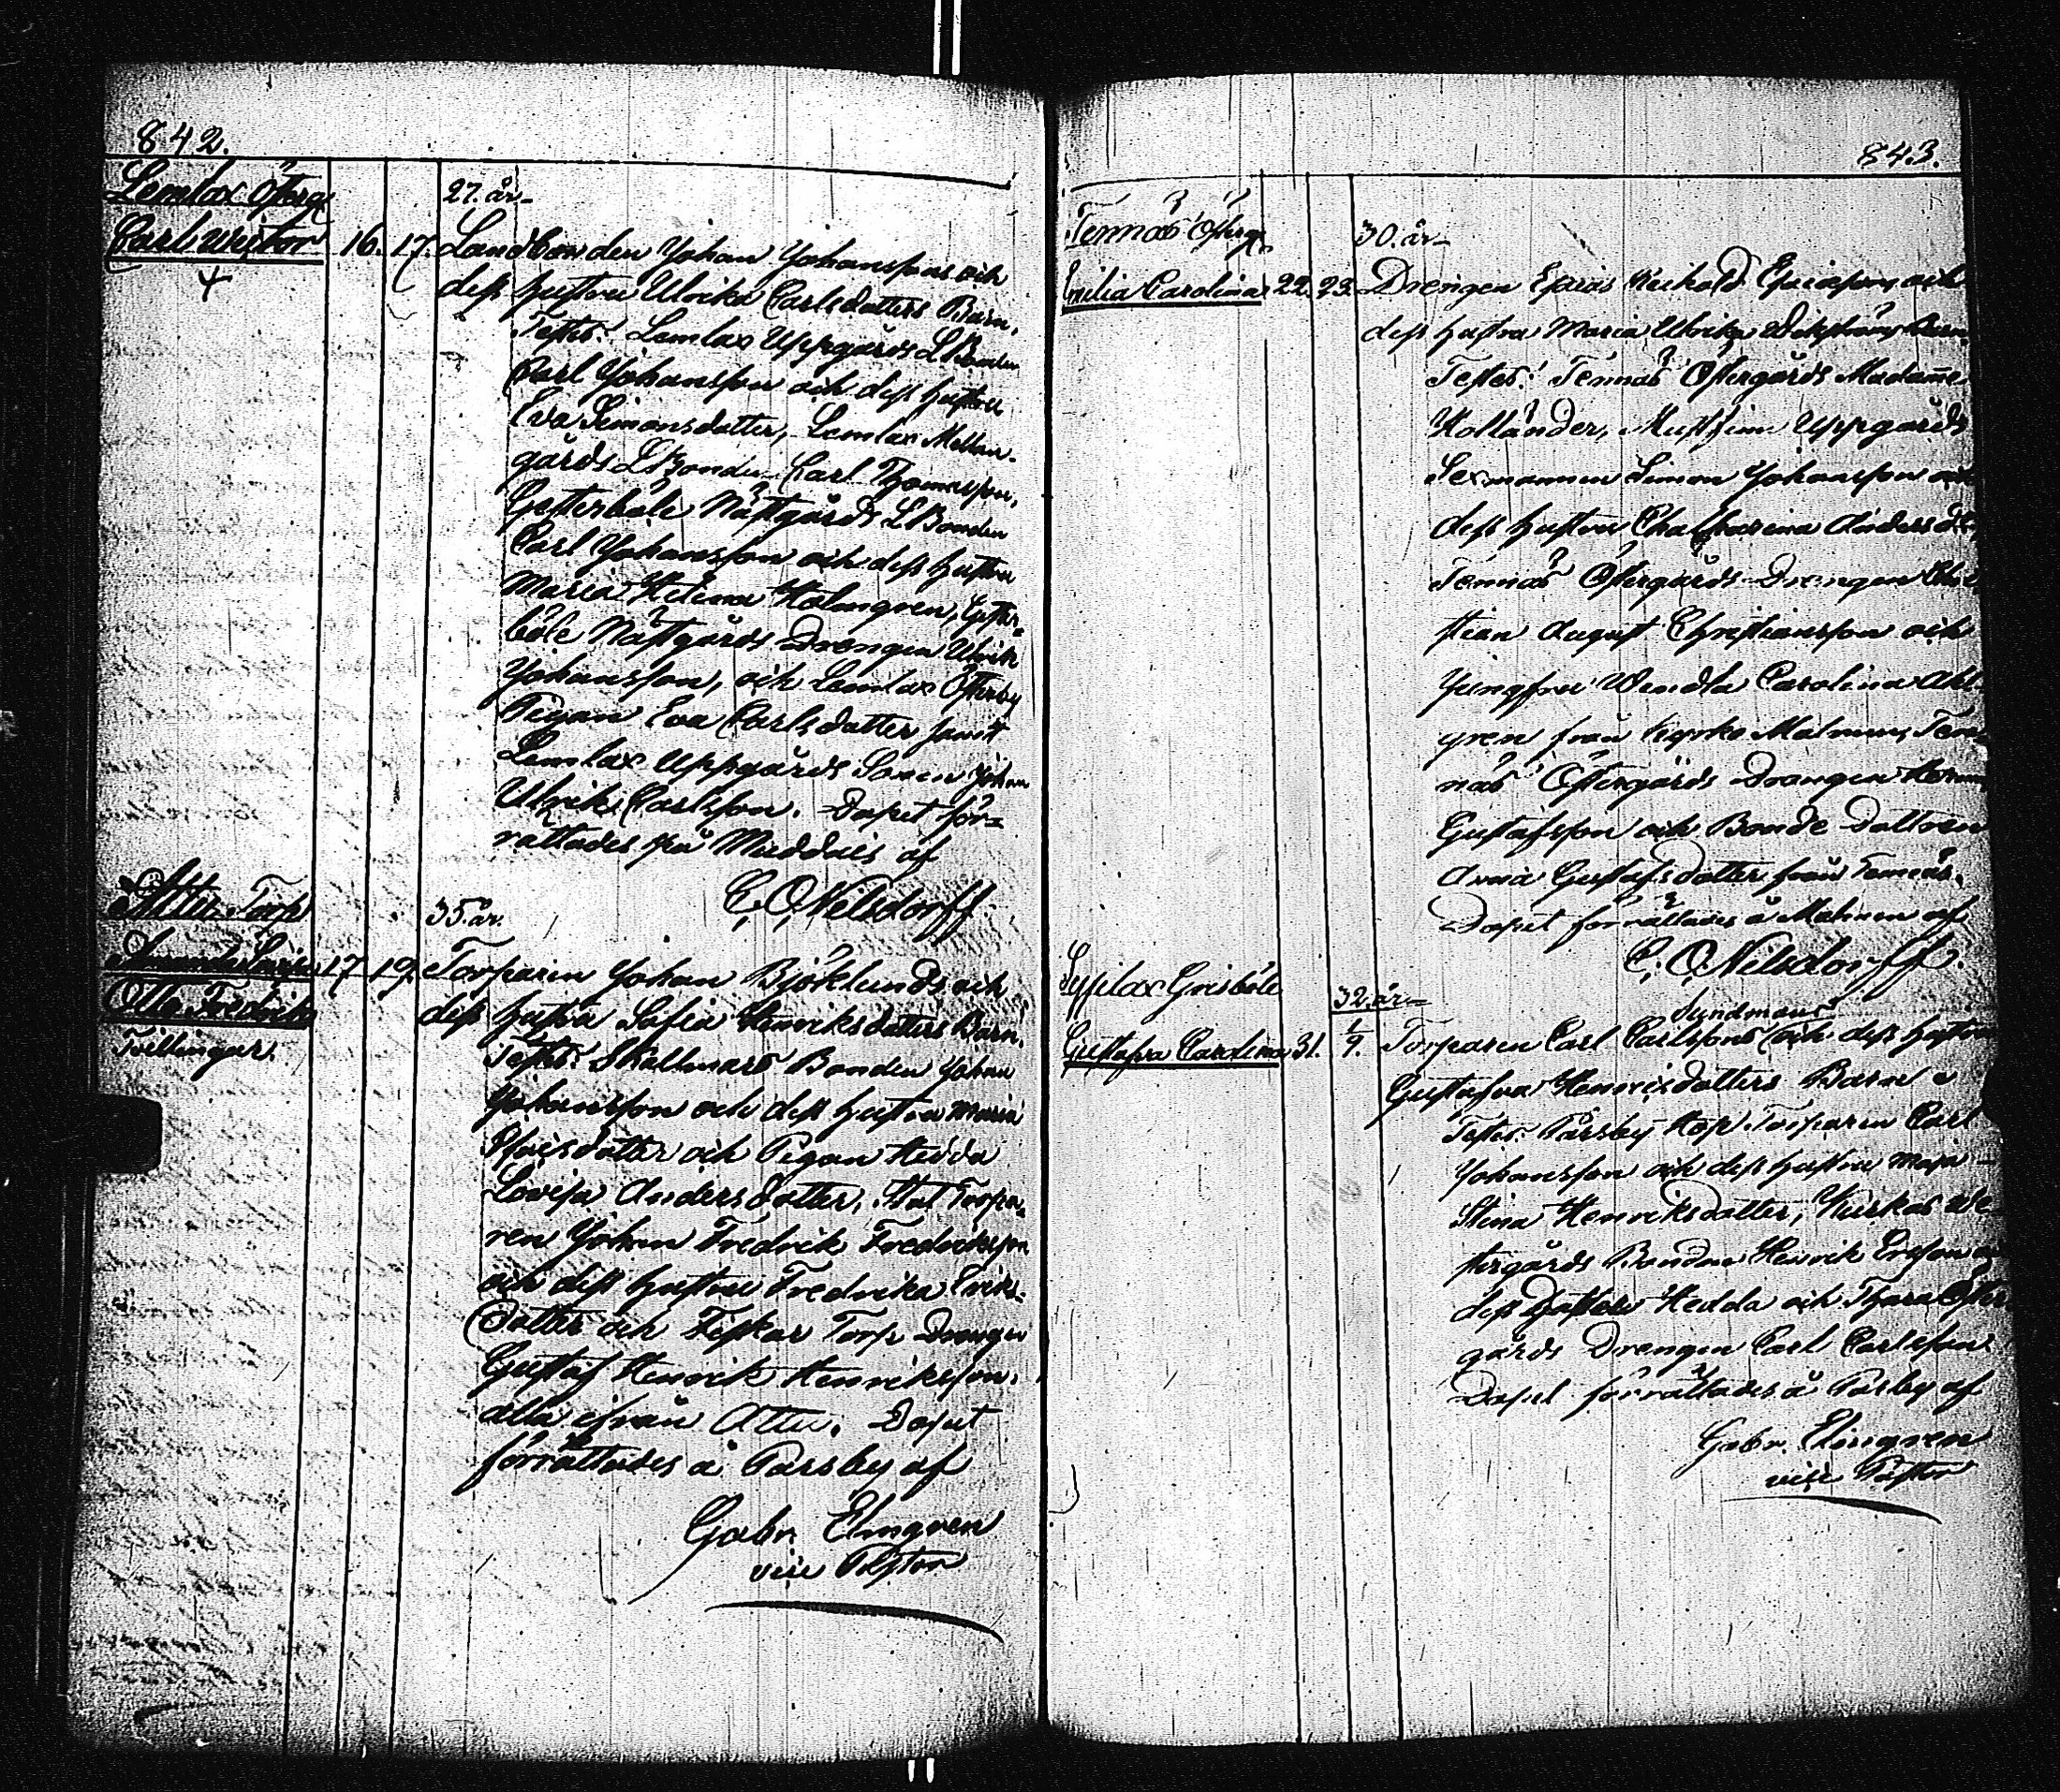 842.
Lemlax Österg
27. år
Carl Wictor 16. 17. Landbonden Johan Johanssons och
dess hustru Ulrika Carlsdotters Barn.
Testes: Lemlax Uppgårds LBonden
Carl Johansson och dess hustru
Eva Simonsdotter, Lemlax Mellan-
gårds LBonden Carl Thomasson,
Gesterböle Nästgårds LBonden
Carl Johansson och dess hustru
Maria Helena Holmgren, Gester-
böle Nästgårds Drengen Ulrik
Johansson, och Lemlax Österby
Pigan Eva Carlsdotter samt
Lemlax Uppgårds Sonen Johan
Ulrik Carlsson. Dopet för-
rättades på Muddais af
C. O. Nelsdorff
Attu Torp
35. år.
Amanda 17 19. Torparen Johan Björklunds och
Otto Fredrik
dess hustru Sofia Henriksdotters Barn.
Tvillingar.
Testes: Skallmars Bonden Johan
Johansson och dess hustru Maria
dotter och Pigan Hedda
Lovisa Andersdotter, Torpa-
ren Johan Fredrik Fredriksson
och dess hustru Fredrika Eriks-
dotter och Fiskar Torp Drengen
Gustaf Henrik Henriksson.
alla ifrån Attu. Dopet
förrättades å Parsby af
Gabr. Elmgren
vice Pastor
843.
Tennäs Österg
30. år
Emilia Carolina 22. 23. Drengen Esaias Esaiasson och
dess hustru Maria Ulrika Barn
Testes: Tennäs Östergårds Madame
Holländer, Uppgårds
Sexmannen Simon Johansson och
dess hustru Catharina Andersd
Tennäs Östergårds Drengen Chri
stian August Christiansson och
Jungfru Wendla Carolina
gren från Kyrko Malmen, Ten
näs Östergårds Drengen
Gustafsson och Bonde Dottren
Anna Gustafsdotter från Tennäs.
Dopet förrättades å Malmen af
C. O. Nelsdorff.
Lyfilax Grisböle
32. år
Sundmans
Gustafva Carolina 31. 1/9. Torparen Carl Carlssons och dess hustru
Gustafva Henriksdotters Barn
Testes: Pårsby Torparen Carl
Johansson och dess hustru Maja
Stina Henriksdotter, Kurkas We
stergårds Bonden Henrik Ersson och
dess Hedda och Öster
gårds Drengen Carl Carlsson
Dopet förrättades å Parsby af
Gabr. Elmgren
vice Pastor